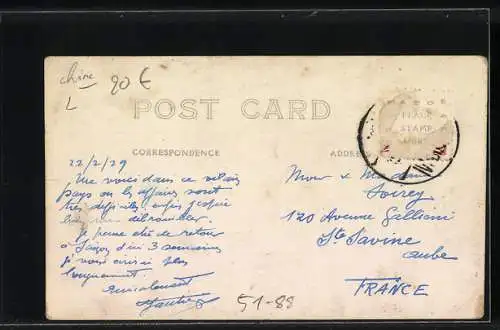 chine
L
20 €
POST CARD
CORRESPONDENCE
ADDRESS
PLACE
STAMP
HERE
22/2/29
Me voici dans ce vilain
pays ou les affaires sont
très difficiles enfin j'espère
débrouiller.
Je pense être de retour
a 3 semaines
j'vous écrirai plus
longuement.
Amicalement
Mour & Madame
120 Avenue Gallieni
Ste Savine
Aube
FRANCE
51-88